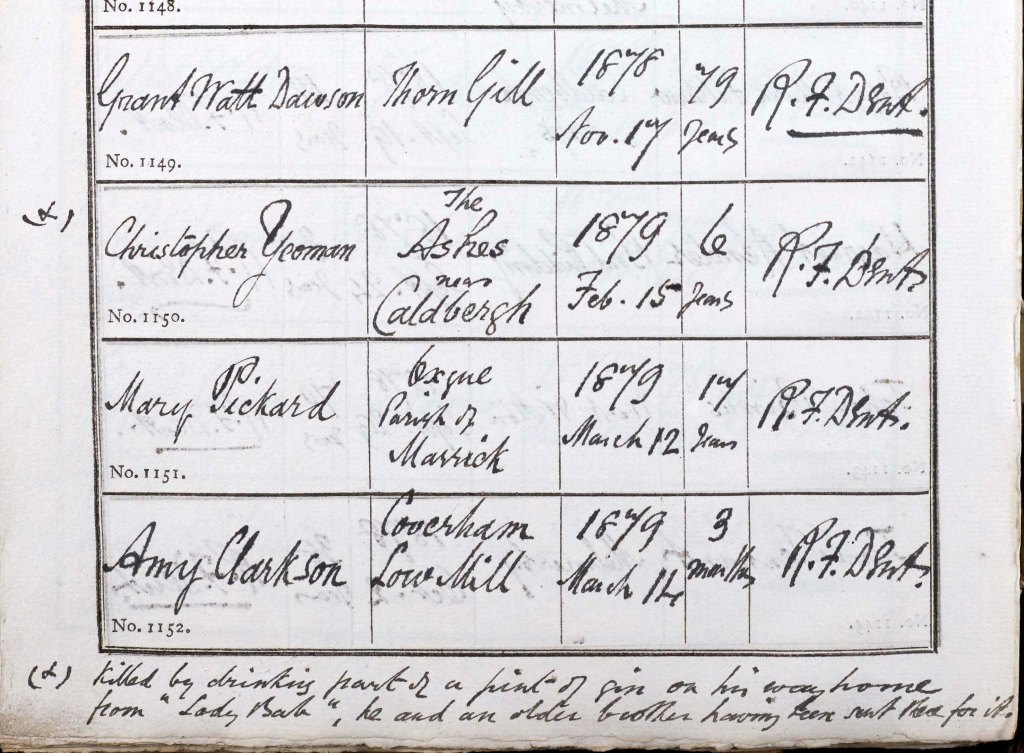 No. 1148.
Grant Watt Dawson
Thorn Gill
1878
Nov. 17
79
years
R. F. Dent.
No. 1149.
(x)
Christopher Yeoman
The
Ashes
near
Caldbergh
1879
Feb. 15
6
years
R. F. Dent
No. 1150.
Mary Pickard
Oxque
Parish of
Marrick
1879
March 12
17
years
R. F. Dent.
No. 1151.
Amy Clarkson
Coverham
Low Mill
1879
March 14
3
months
R. F. Dent.
No. 1152.
(x) Killed by drinking part of a pint of gin on his way home
from "Lady Bab", he and an older brother having been sent there for it.